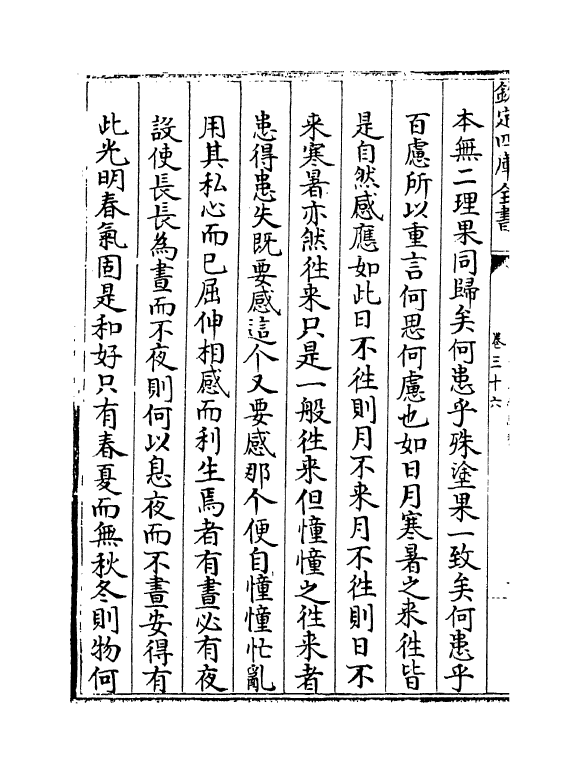 欽定四庫全書
卷三十六
本無二理果同歸矣何患乎殊塗果一致矣何患乎
百慮所以重言何思何慮也如日月寒暑之來往皆
是自然感應如此日不往則月不來月不往則日不
來寒暑亦然往来只是一般往來但憧憧之往來者
患得患失既要感這个又要感那个便自憧憧忙亂
用其私心而已屈伸相感而利生焉者有晝必有夜
設使長長為晝而不夜則何以息夜而不晝安得有
此光明春氣固是和好只有春夏而無秋冬則物何